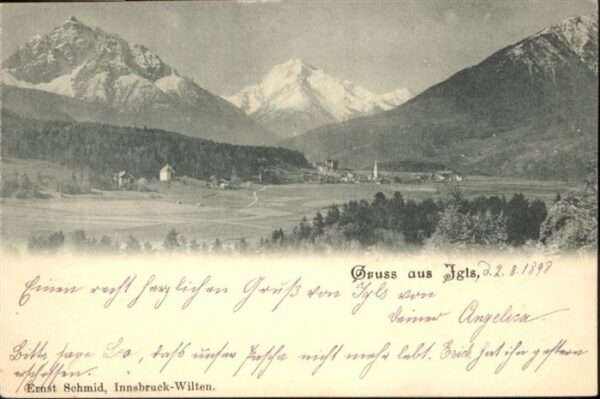 Gruss aus Igls, d. 2. 8. 1898
Einen recht herzlichen Gruß von Igls von
Deiner Angelica
Bitte sage Leo, daß unser Pascha nicht mehr lebt. Erich hat ihn gestern
erschossen.
Ernst Schmid, Innsbruck-Wilten.